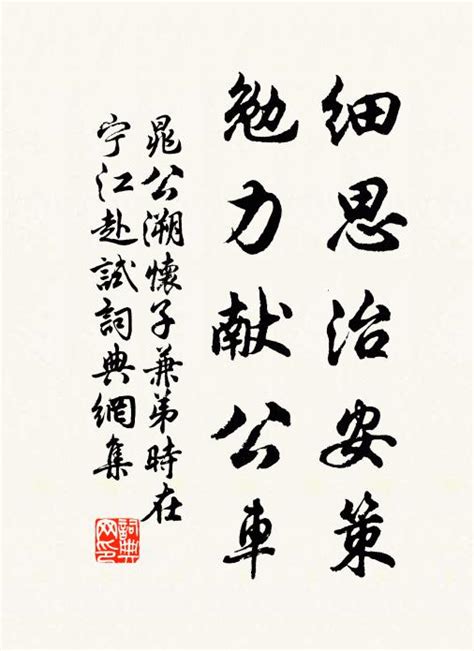 细思治安策
勉力献公車
晁公溯懷子兼弟時在
宁江赴試詞典網集
詞典网印